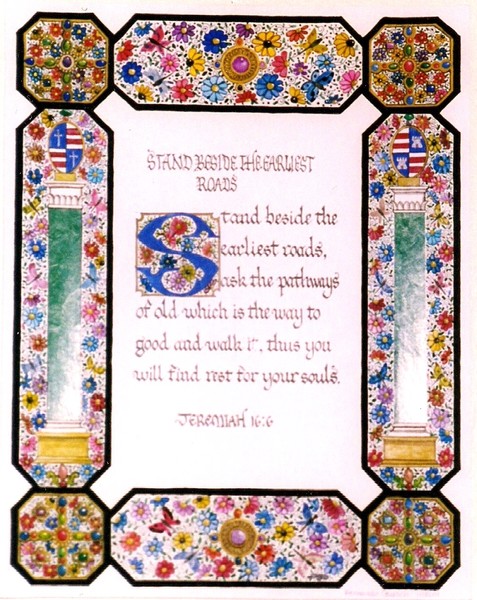 STAND BESIDE THE EARLIEST
ROADS
Stand beside the
earliest roads,
ask the pathways
of old which is the way to
good and walk it, thus you
will find rest for your souls.
JEREMIAH 16:6